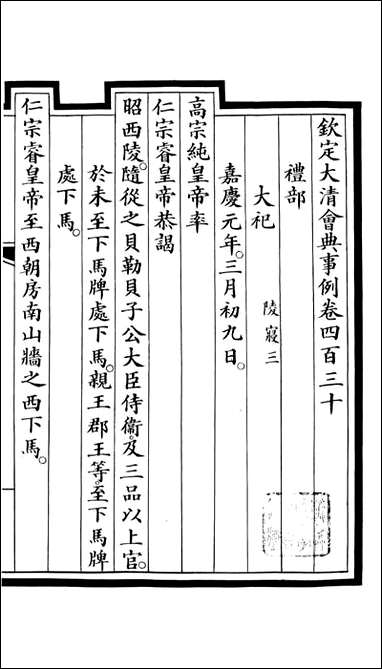 欽定大清會典事例卷四百三十
禮部
大祀 陵寢三
嘉慶元年。三月初九日。
高宗純皇帝率
仁宗睿皇帝恭謁
昭西陵。隨從之貝勒貝子公大臣侍衞。及三品以上官。
於未至下馬牌處下馬。親王郡王等。至下馬牌
處下馬。
仁宗睿皇帝至西朝房南山牆之西下馬。